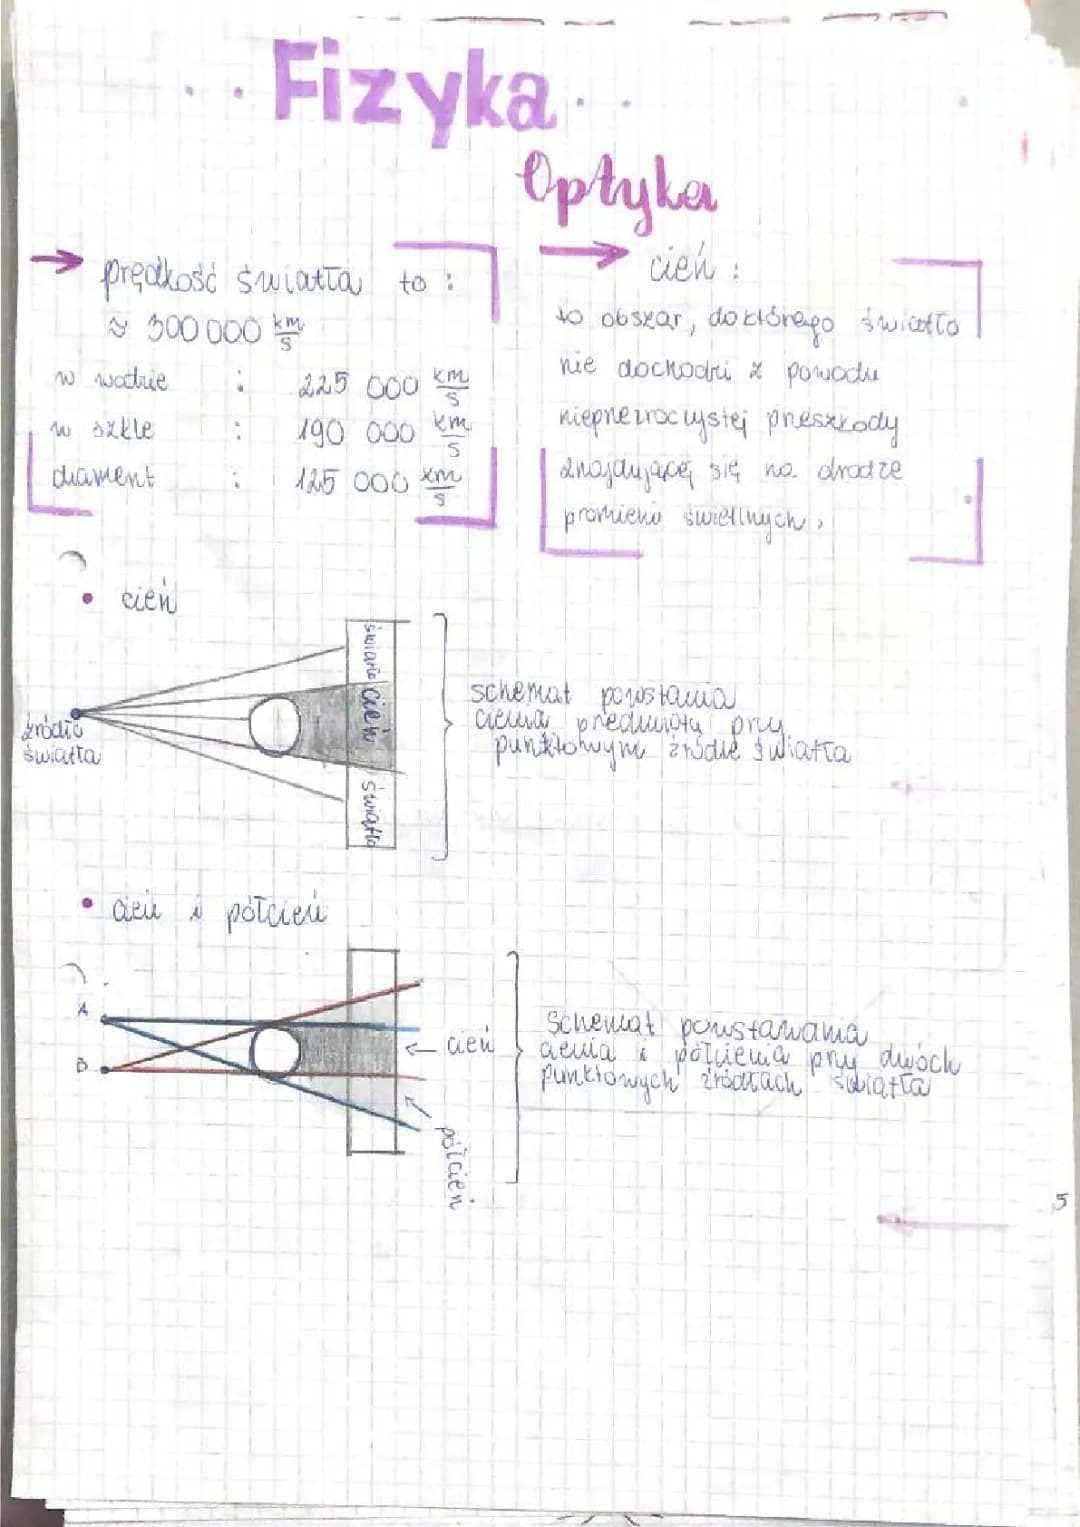 Fizyka
Optyka
prędkość światła to :
≈ 300 000 km/s
w wodzie : 225 000 km/s
w szkle : 190 000 km/s
diament : 125 000 km/s
cień :
to obszar, do którego światło
nie dochodzi z powodu
nieprzezroczystej przeszkody
znajdującej się na drodze
promieni świetlnych.
• cień
źródło
światła
światło
cień
światło
schemat powstania
cienia przedmiotu przy
punktowym źródle światła
• cień i półcień
A
B
cień
półcień
Schemat powstawania
cienia i półcienia przy dwóch
punktowych źródłach światła
5